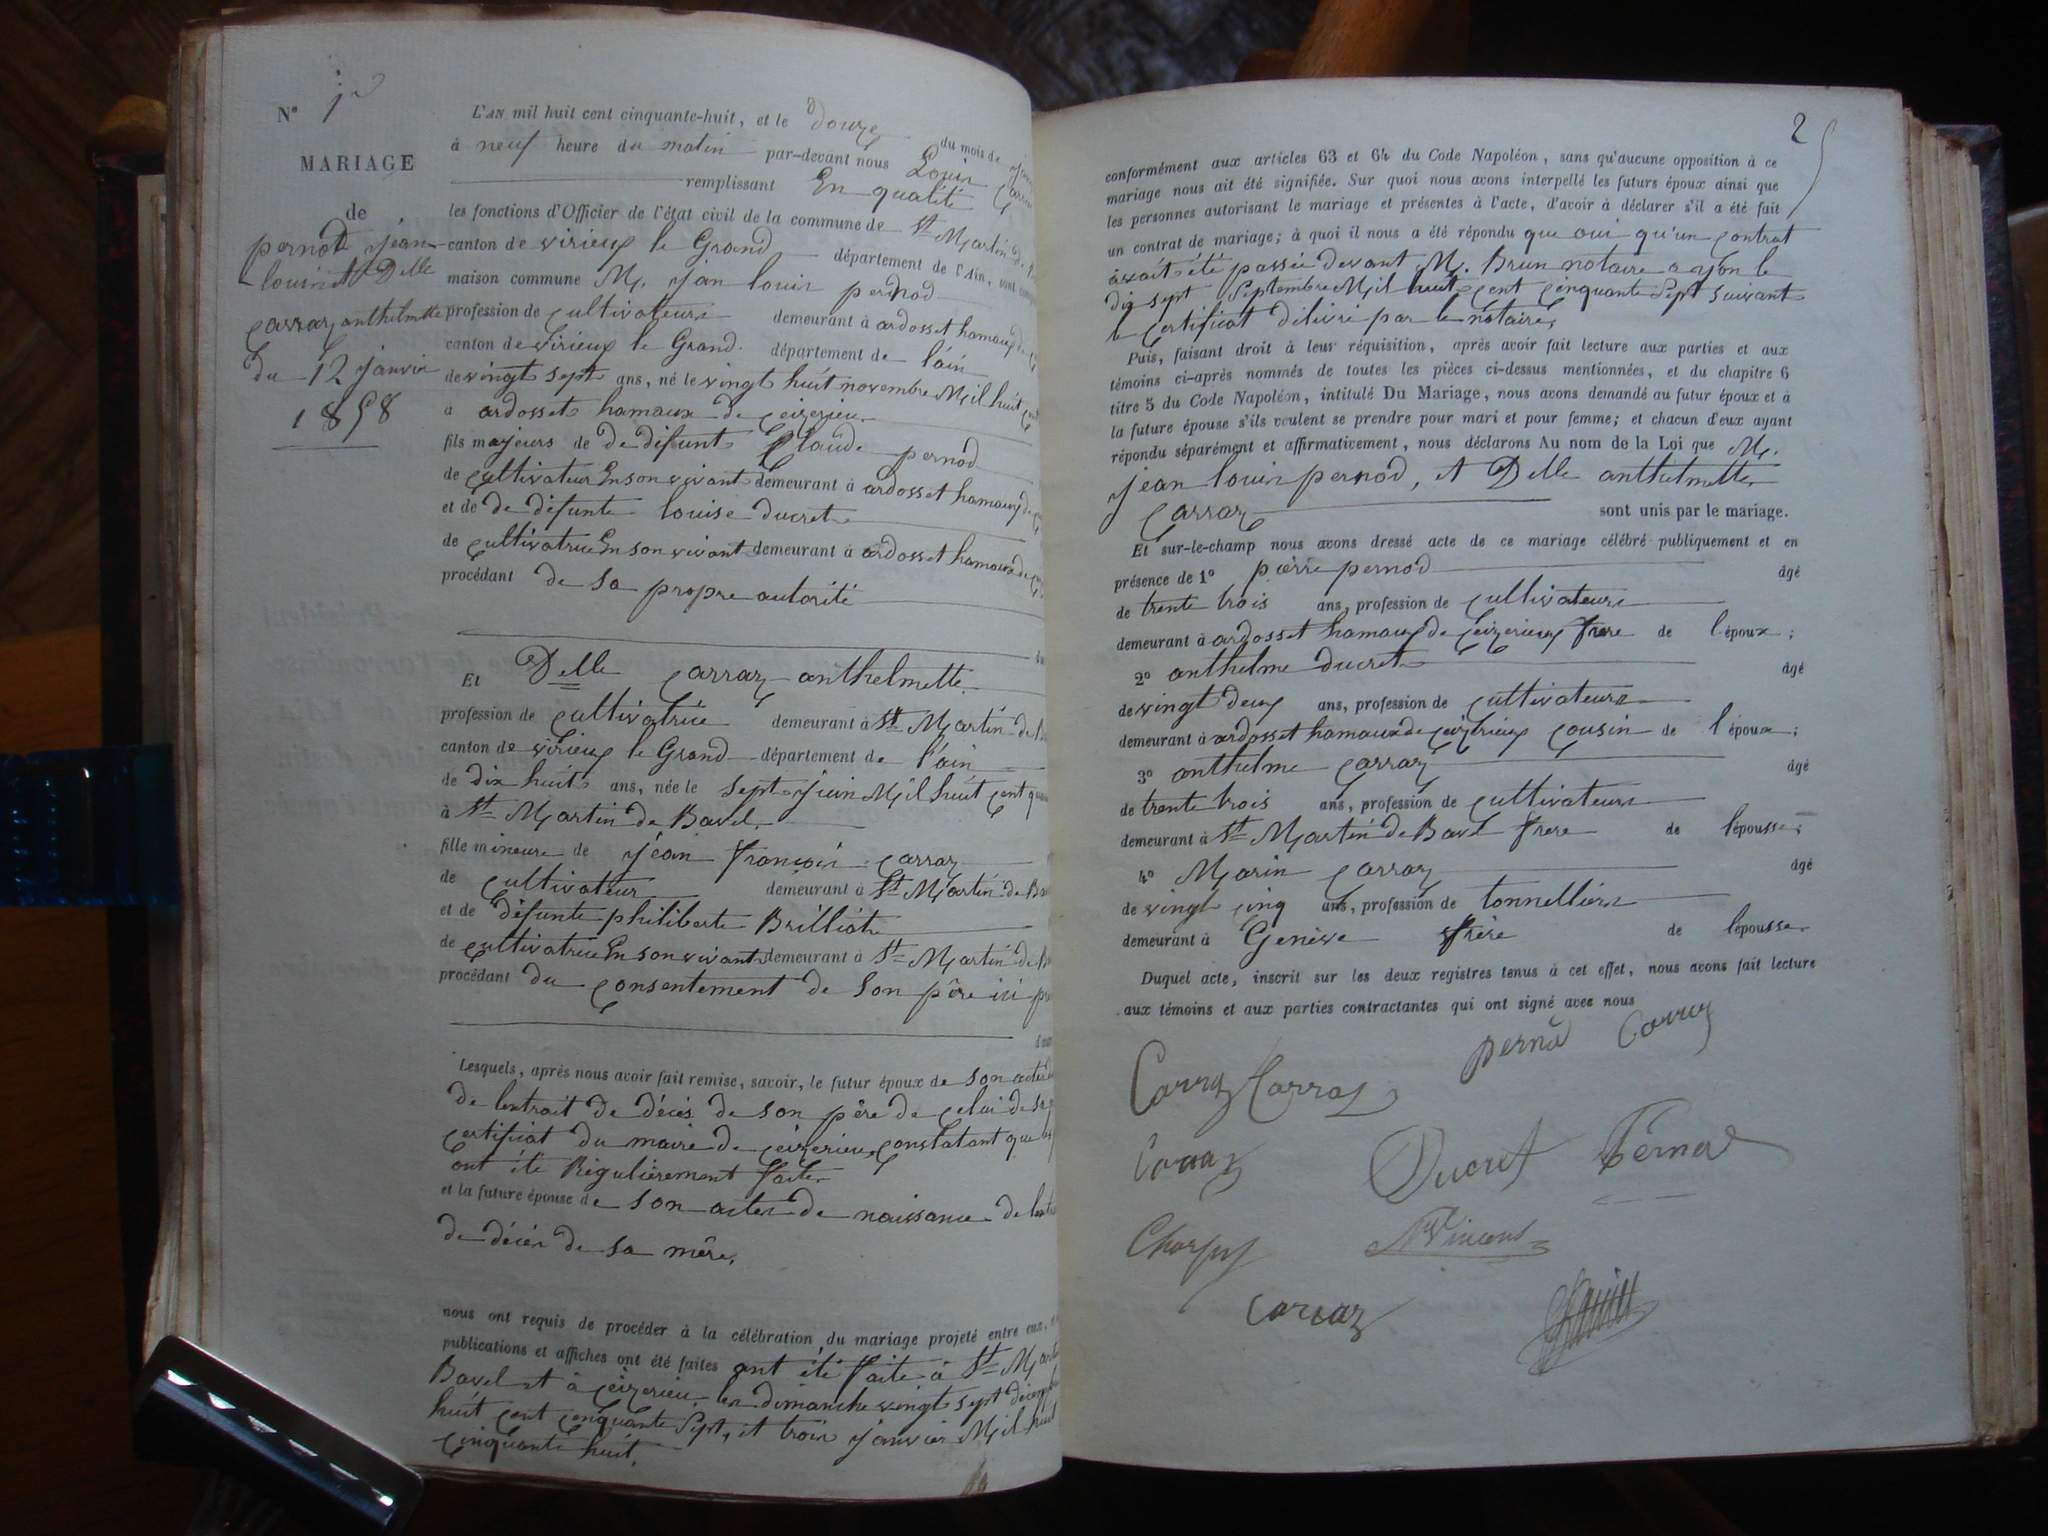 N° 1
MARIAGE
de
pernod jean
louis et Delle
Carraz anthelmette
du 12 janvier
1858
L'AN mil huit cent cinquante-huit, et le douze du mois de
à neuf heure du matin par-devant nous Louis
remplissant En qualité
les fonctions d'Officier de l'état civil de la commune de St Martin de
canton de virieux le Grand département de l'Ain, sont
maison commune M. jean louis pernod
profession de cultivateur demeurant à ardosset hamaux de
canton de virieux le Grand département de lain
de vingt sept ans, né le vingt huit novembre Mil huit
à ardosset hamaux de ceizerieu
fils majeurs de de défunt Claude pernod
de cultivateur En son vivant demeurant à ardosset hamaux de
et de de défunte louise ducret
de cultivatrice En son vivant demeurant à ardosset hamaux de
procédant de sa propre autorité
Et Delle Carraz anthelmette
profession de cultivatrice demeurant à St Martin de
canton de virieux le Grand département de l'ain
de dix huit ans, née le sept juin Mil huit cent
à St Martin de Bavel
fille mineure de jéan françois Carraz
de cultivateur demeurant à St Martin de
et de défunte philiberte Brilliat
de cultivatrice En son vivant demeurant à St Martin de
procédant du consentement de son père ici
Lesquels, après nous avoir fait remise, savoir, le futur époux de son acte
de lextrait de décès de son père de celui de
certificat du maire de ceizerieu constatant que
ont été Régulièrement faites
et la future épouse de son acte de naissance de
de décès de sa mère,
nous ont requis de procéder à la célébration du mariage projeté entre eux,
publications et affiches ont été faites ont été faite à St
Bavel et à ceizerieu les dimanche vingt sept
huit cent cinquante Sept, et trois janvier Mil huit
cinquante huit.
2
conformément aux articles 63 et 64 du Code Napoléon, sans qu'aucune opposition à ce
mariage nous ait été signifiée. Sur quoi nous avons interpellé les futurs époux ainsi que
les personnes autorisant le mariage et présentes à l'acte, d'avoir à déclarer s'il a été fait
un contrat de mariage; à quoi il nous a été répondu que oui qu'un contrat
avait été passée devant M. Brun notaire a yon le
dix sept Septembre Mil huit cent cinquante Sept suivant
le certificat délivré par le notaire,
Puis, faisant droit à leur réquisition, après avoir fait lecture aux parties et aux
témoins ci-après nommés de toutes les pièces ci-dessus mentionnées, et du chapitre 6
titre 5 du Code Napoléon, intitulé Du Mariage, nous avons demandé au futur époux et à
la future épouse s'ils veulent se prendre pour mari et pour femme; et chacun d'eux ayant
répondu séparément et affirmativement, nous déclarons Au nom de la Loi que M.
jean louis pernod, et Delle anthelmette
Carraz sont unis par le mariage.
Et sur-le-champ nous avons dressé acte de ce mariage célébré publiquement et en
présence de 1° pierre pernod âgé
de trente trois ans, profession de cultivateur
demeurant à ardosset hamaux de ceizerieux frere de l'époux;
2° anthelme ducret âgé
de vingt deux ans, profession de cultivateur
demeurant à ardosset hamaux de ceizerieux cousin de l'époux;
3° anthelme Carraz âgé
de trente trois ans, profession de cultivateur
demeurant à St Martin de Bavel frere de lépousse;
4° Marin Carraz âgé
de vingt cinq ans, profession de tonnellier
demeurant à Genève frère de lépousse.
Duquel acte, inscrit sur les deux registres tenus à cet effet, nous avons fait lecture
aux témoins et aux parties contractantes qui ont signé avec nous
pernod Carraz
Carraz Carraz
Carraz Ducret Pernod
Charpy Vincent
Carraz